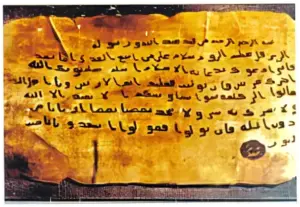 بسم الله الرحمن الرحيم من محمد عبد الله ورسوله
الى هرقل عظيم الروم سلام على من اتبع الهدى اما بعد
فانى ادعوك بدعاية الاسلام اسلم تسلم يوتك الله
اجرك مرتين فان توليت فعليك اثم ويا اهل
تعالوا الى كلمة سوا بيننا وبينكم الا نعبد الا الله
ولا نشرك به شيا ولا يتخذ بعضنا بعضا اربابا من
دون الله فان تولوا فقولوا بانا